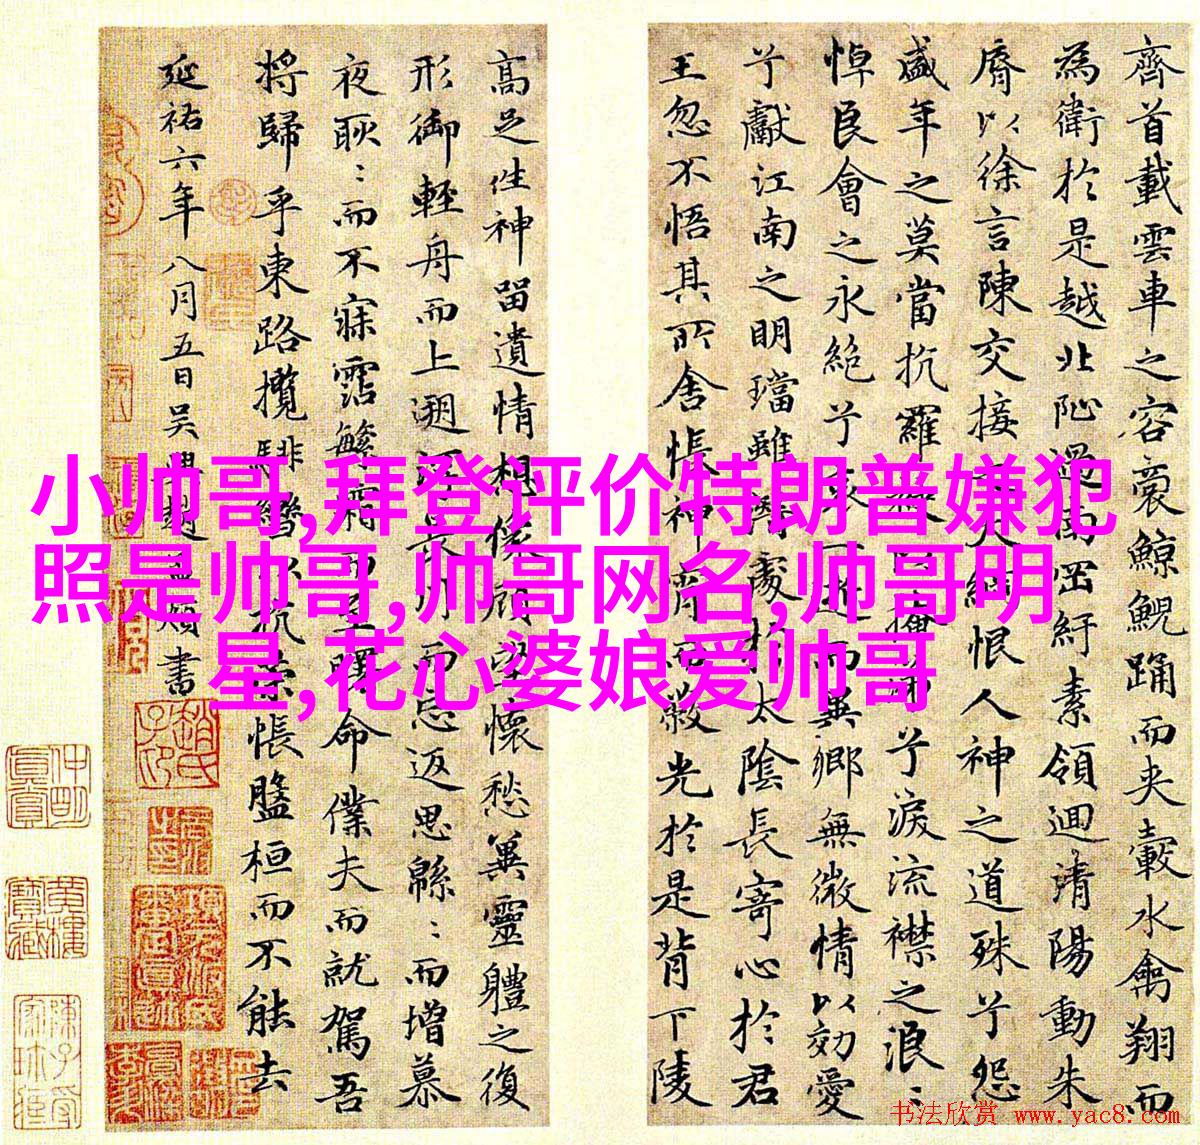 齊首載雲車之容裔鯨鯢踊而夾轂水禽翔而
為衛於是越北沚過南岡紆素領迴清陽動朱
脣以徐言陳交接之大綱恨人神之道殊兮怨
盛年之莫當抗羅袂以掩涕兮淚流襟之浪〻
悼良會之永絕兮哀一逝而異鄉無微情以效愛
兮獻江南之明璫雖潛處於太陰長寄心於君
王忽不悟其所舍悵神宵而蔽光於是背下陵
高足往神留遺情想像顧望懷愁冀靈體之復
形御輕舟而上遡浮長川而忘返思緜〻而增慕
夜耿〻而不寐霑繁霜而至曙命僕夫而就駕吾
將歸乎東路攬騑轡以抗策悵盤桓而不能去
延祐六年八月五日吳興趙孟頫書
小帅哥,拜登评价特朗普嫌犯
照是帅哥,帅哥网名,帅哥明
星,花心婆娘爱帅哥
趙氏子印
书法欣赏 www.yac8.com